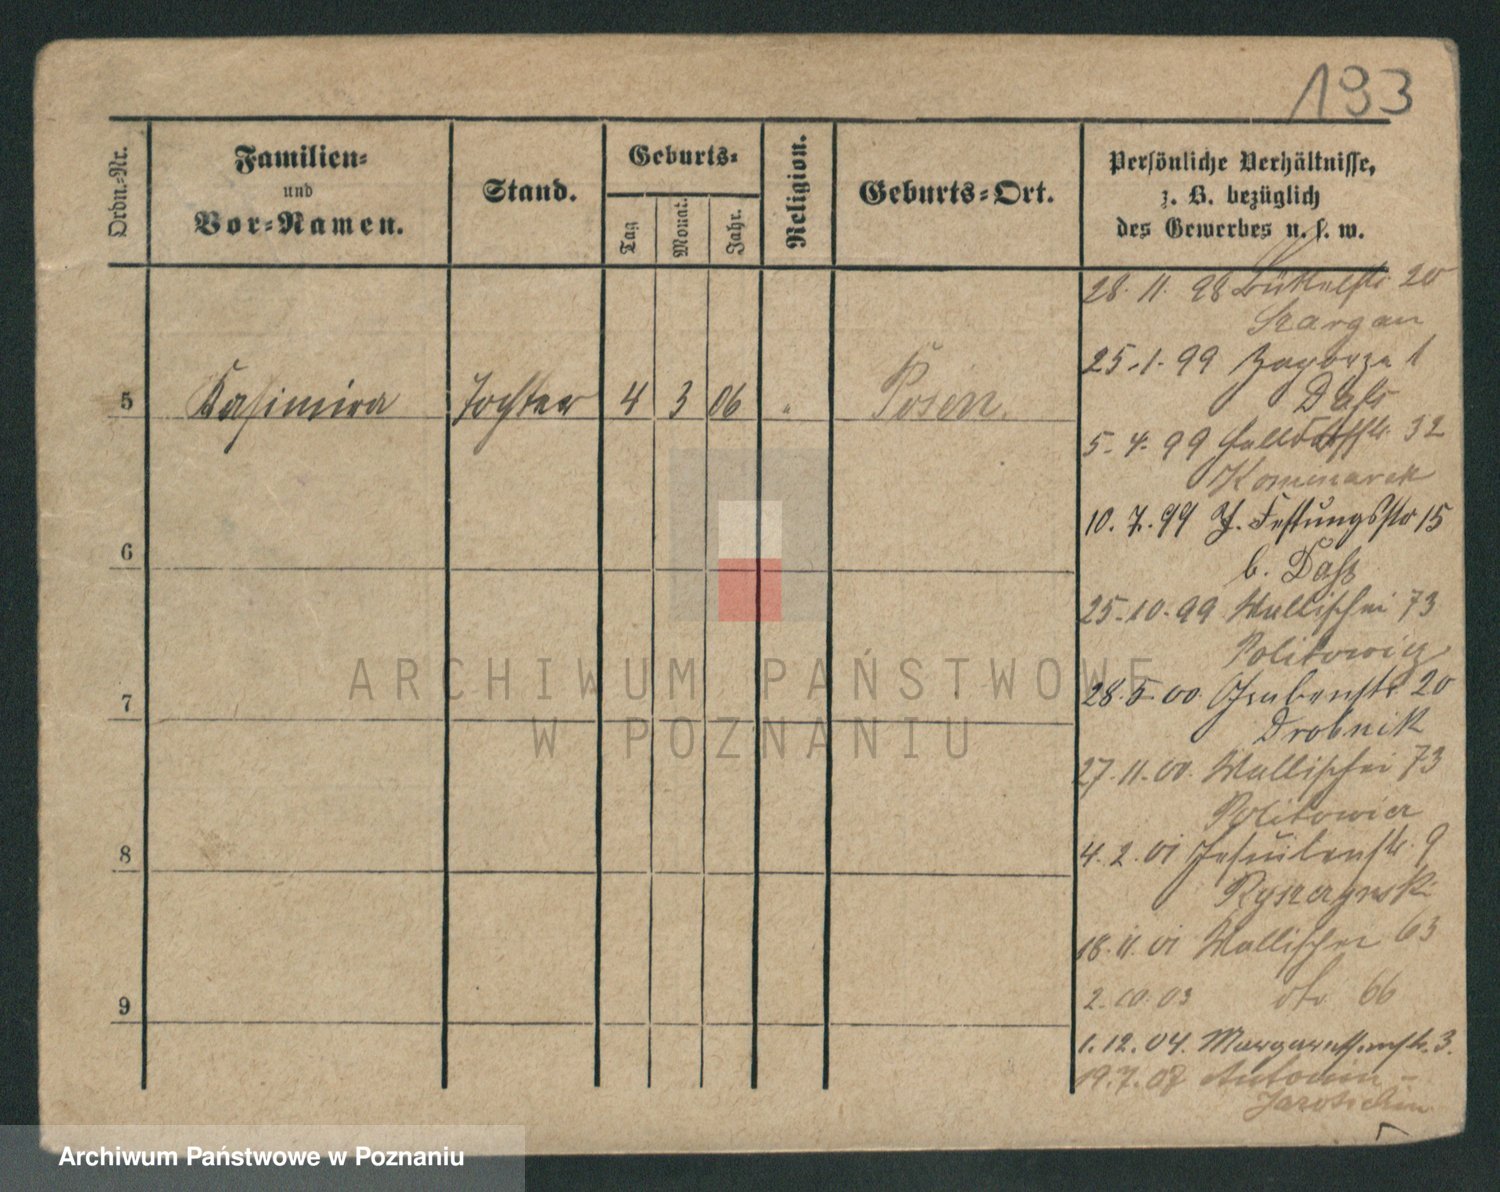 193
Ordn.-Nr.
Familien-
und
Vor-Namen.
Stand.
Geburts-
Tag
Monat.
Jahr.
Religion.
Geburts-Ort.
Persönliche Verhältnisse,
z. B. bezüglich
des Gewerbes u. s. w.
5 Kasimira Tochter 4 3 06 " Posen.
6
7
8
9
28. 11. 98 Büttelstr 20
25.1.99 Zagorze 1
5. 4. 99 32
10. 7. 99 Festungsstr 15
b.
25.10.99 Wallischei 73
Politowicz
28.5.00. Grabenstr 20
Drobnik
27.11.00. Wallischei 73
Politowicz
4. 2. 01 Jesuitenstr. 9
18. 11. 01 Wallischei 63
2.10.03 dto 66
1.12.04. Margarethenstr. 3.
19.7.07 Antonin -
Jarotschin
ARCHIWUM PAŃSTWOWE
W POZNANIU
Archiwum Państwowe w Poznaniu